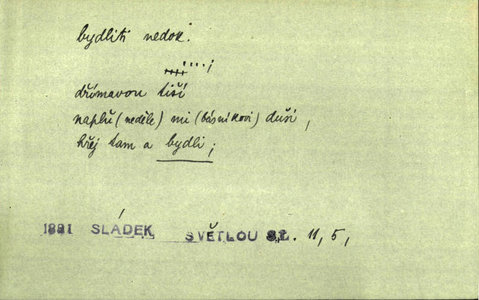 bydliti nedok.
....;
dřímavou tiší
naplň (neděle) mi (básníkovi) duši,
hřej tam a bydli;
1891 SLÁDEK SVĚTLOU ST. 11, 5,